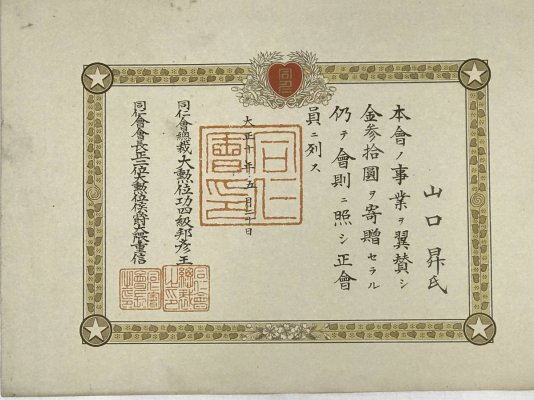 山口昇氏
本會ノ事業ヲ翼賛シ
金參拾圓ヲ寄贈セラル
仍テ會則ニ照シ正會
員ニ列ス
大正十年五月二十日
同仁會總裁大勲位功四級邦彦王
同仁會會長正二位大勲位侯爵大隈重信
同仁會印
同仁
同仁會總裁之印
同仁會會長之印